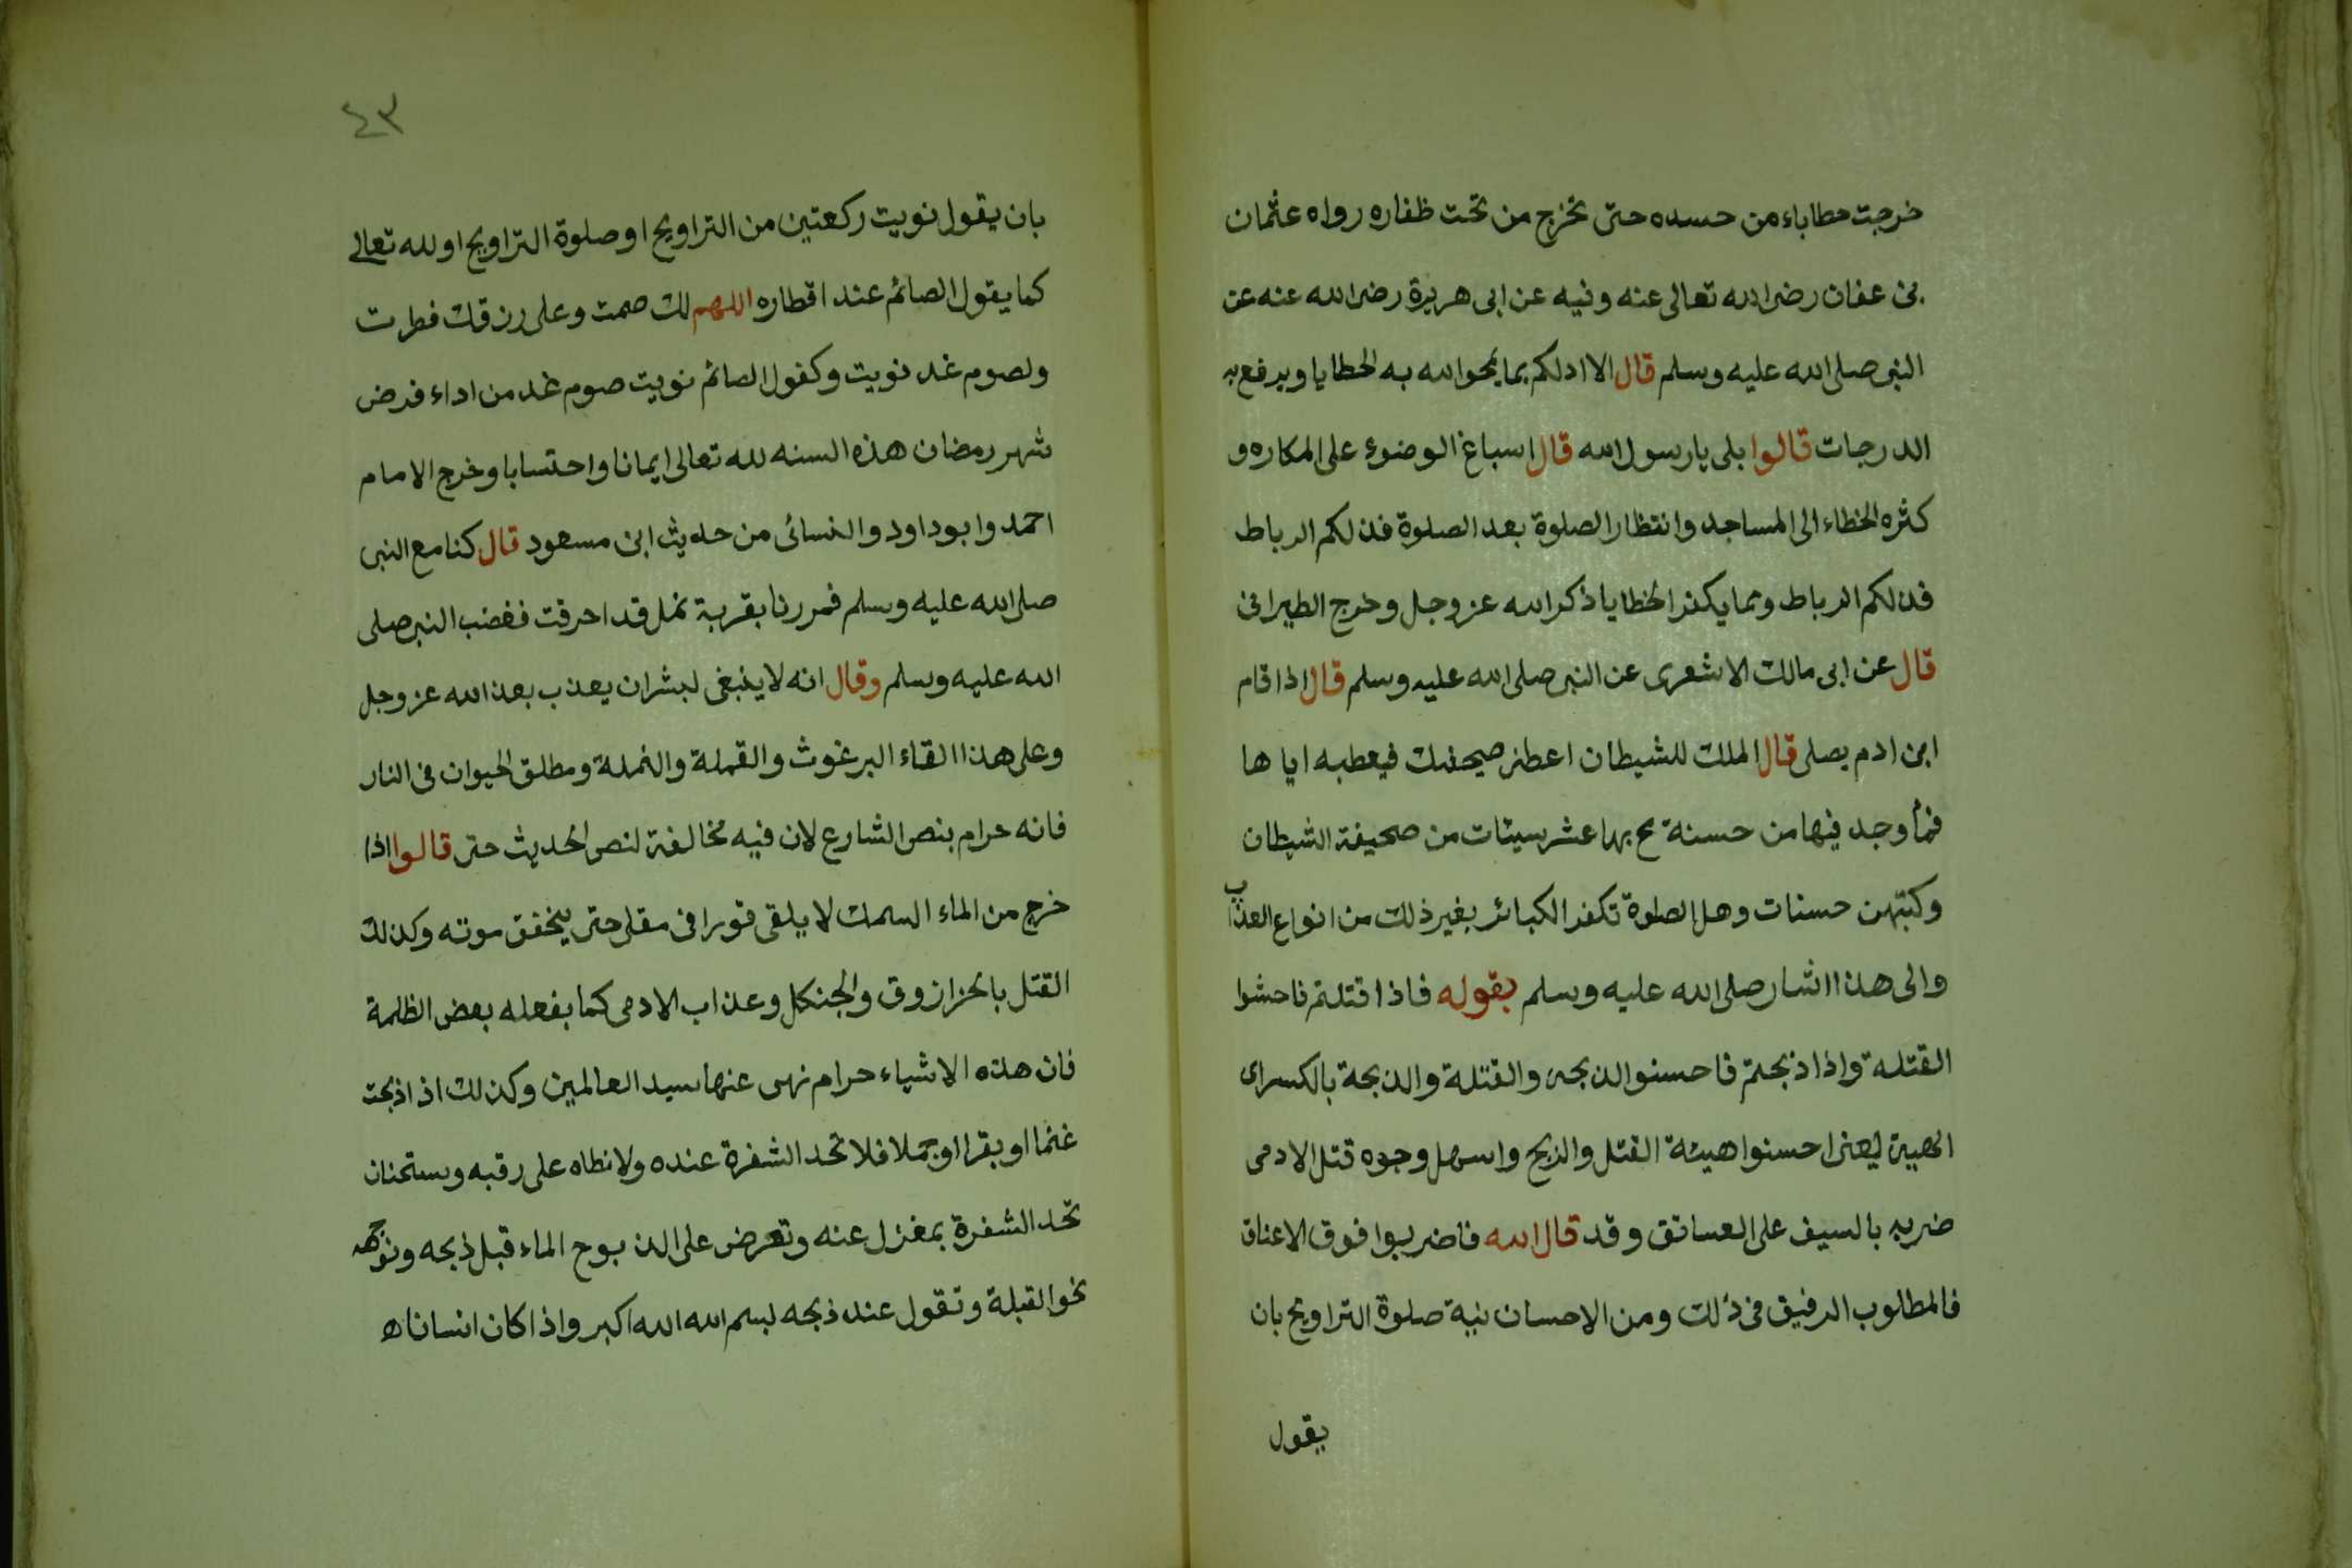 خرجت حطاباء من حسده حتى تخرج من تحت ظفاره رواه عثمان
بن عفان رضى الله تعالى عنه وفيه عن ابى هريرة رضى الله عنه عن
النبى صلى الله عليه وسلم قال الا ادلكم بما يمحوا الله به الخطايا ويرفع به
الدرجات قالوا بلى يا رسول الله قال اسباغ الوضوء على المكاره و
كثره الخطاء الى المساجد وانتظار الصلوة بعد الصلوة فذلكم الرباط
فذلكم الرباط ومما يكفر الخطايا ذكر الله عز وجل وخرج الطبرانى
قال عن ابى مالك الاشعرى عن النبى صلى الله عليه وسلم قال اذا قام
ابن ادم يصلى قال الملك للشيطان اعطنى صيحفتك فيعطيه اياها
فما وجد فيها من حسنة مح بها عشر سيئات من صحيفة الشيطان
وكتبهن حسنات وهل الصلوة تكفر الكبائر بغير ذلك من انواع العذاب
والى هذا اشار صلى الله عليه وسلم بقوله فاذا قتلتم فاحشوا
القتلة واذا ذبحتم فاحسنوا الذبحة والقتلة والذبحة بالكسر اى
الهيبة يعنى احسنوا هيئة القتل والذبح واسهل وجوه قتل الادمى
ضربه بالسيف على العساتق وقد قال الله فاضربوا فوق الاعناق
فالمطلوب الرفيق فى ذلك ومن الاحسان نية صلوة التراويح بان
يقول
٤٣
بان يقول نويت ركعتين من التراويح او صلوة التراويح او لله تعالى
كما يقول الصائم عند افطاره اللهم لك صمت وعلى رزقك فطرت
ولصوم غد نويت وكقول الصائم نويت صوم غد من اداء فرض
شهر رمضان هذه السنه لله تعالى ايمانا واحتسابا وخرج الامام
احمد وابو داود والنسائى من حديث ابن مسعود قال كنا مع النبى
صلى الله عليه وسلم فمررنا بقرية نمل قد احرقت فغضب النبى صلى
الله عليه وسلم وقال انه لا ينبغى لبشر ان يعذب بعذ الله عز وجل
وعلى هذا القاء البرغوث والقملة والنملة ومطلق الحيوان فى النار
فانه حرام بنص الشارع لان فيه مخالفة لنص الحديث حتى قالوا اذا
خرج من الماء السمك لا يلقى فورا فى مقلى حتى يتحقق موته وكذلك
القتل بالخزازوق والجنكل وعذاب الادمى كما يفعله بعض الظلمة
فان هذه الاشياء حرام نهى عنها سيد العالمين وكذلك اذ اذبحت
غنما او بقرا او جملا فلا تحد الشفرة عنده ولا نطاه على رقبه ويستحنان
تحد الشفرة بمغزل عنه وتعرض على المذبوح الماء قبل ذبحه ونوجهه
نحو القبلة وتقول عند ذبحه بسم الله الله اكبر واذا كان انسانا ه